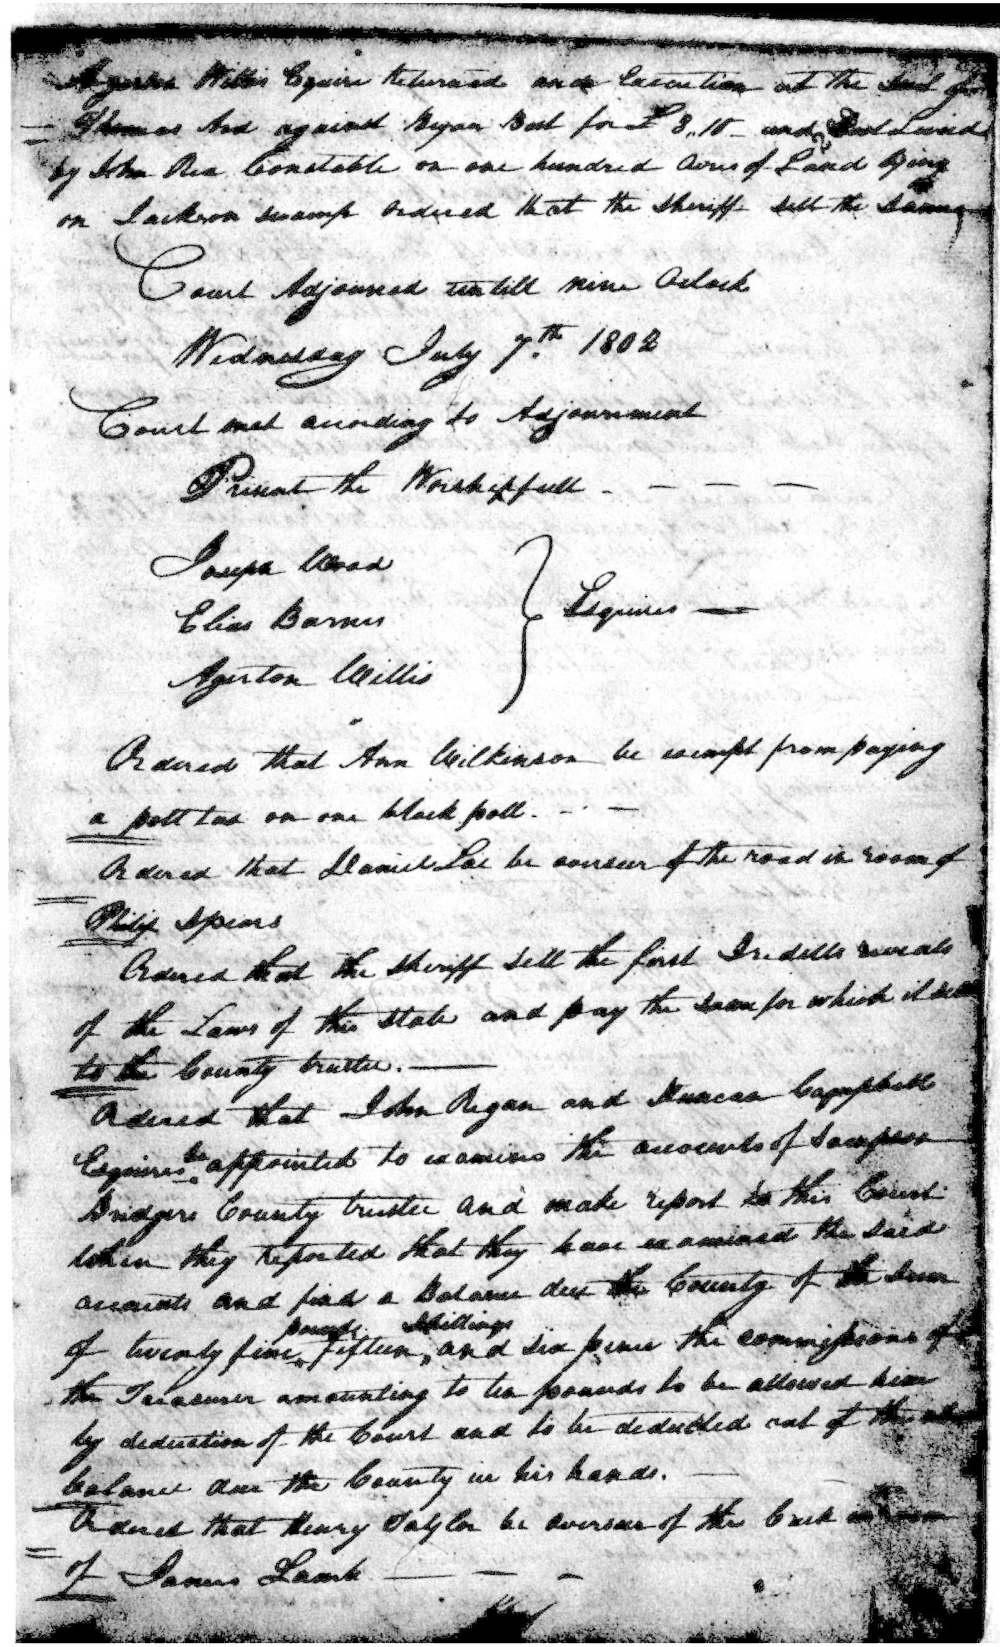 Agerton Willis Esquire Returned and Execution at the Suit of
Thomas And against Bryan Best for £ 8,,10 - and Cost Levied
by John Rea Constable on one hundred Acres of Land lying
on Jackson swamp ordered that the Sheriff sell the Same
Court Adjourned untill nine Oclock
Wednesday July 7th. 1802
Court met according to Adjournment
Present the Worshipfull - - - -
Joseph Wood
Elias Barnes
Agerton Willis
Esquires —
Ordered that Ann Wilkinson be exempt from paying
a poll tax on one black poll. - -
Ordered that Daniel be overseer of the road in room of
Philip Spears
Ordered that the Sheriff Sell the first Iredells revisals
of the Laws of this State and pay the Sum for which it
to the County trustee. —
Ordered that John Regan and Duncan Campbell
Esquires be appointed to examine the accounts of Sampson
Bridgers County trustee and make report to this Court
when they reported that they have examined the said
accounts and find a Balance due the County of the Sum
of twenty five pounds fifteen Shillings and six pence the commissions of
the Treasurer amounting to ten pounds to be allowed him
by deduction of the Court and to be deducted out of the
balance due the County in his hands. —
Ordered that Henry Taylor be overseer of the Creek in room
of James Lamb — - -